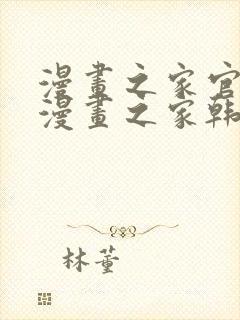 漫畫之家官
漫畫之家韩
林董